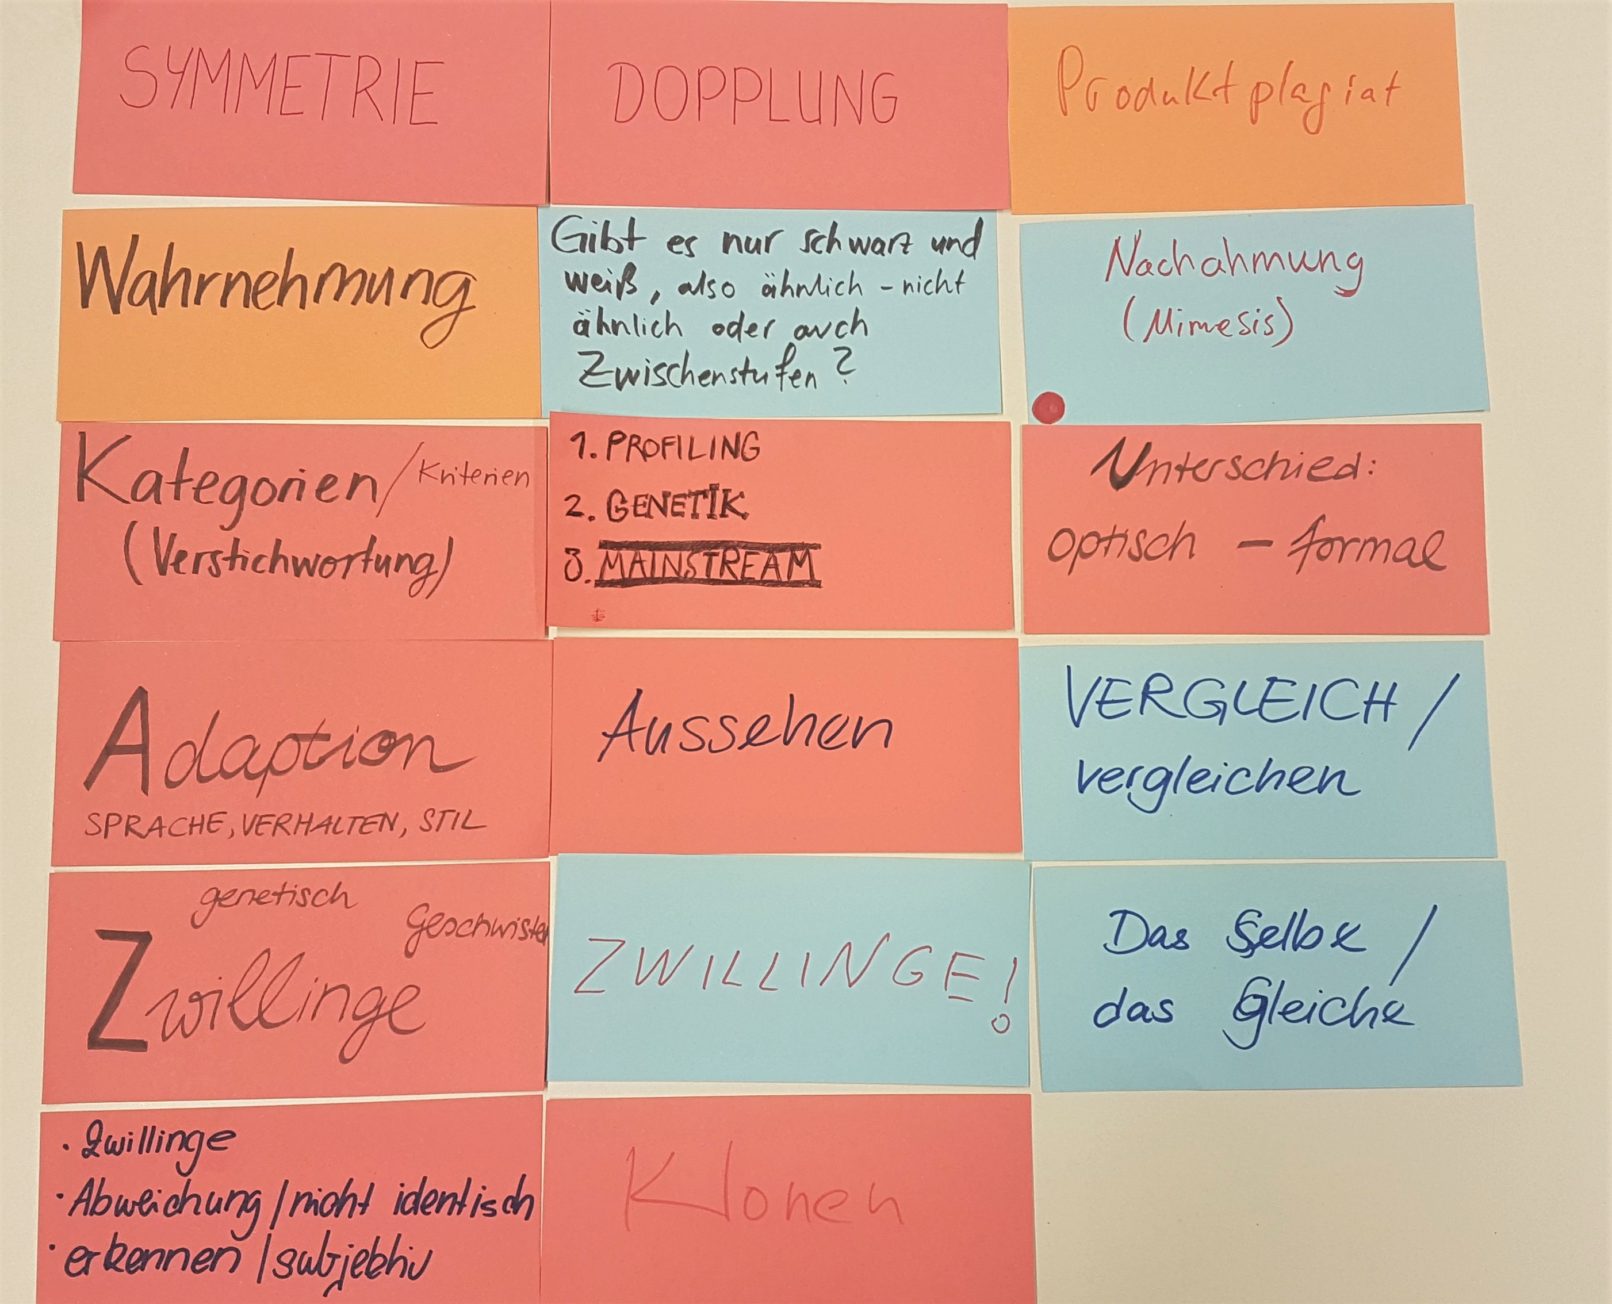 SYMMETRIE
DOPPLUNG
Produktplagiat
Wahrnehmung
Gibt es nur schwarz und
weiß, also ähnlich - nicht
ähnlich oder auch
Zwischenstufen?
Nachahmung
(Mimesis)
Kategorien/Kriterien
(Verstichwortung)
1. PROFILING
2. GENETIK
3. MAINSTREAM
Unterschied:
optisch - formal
Adaption
SPRACHE, VERHALTEN, STIL
Aussehen
VERGLEICH/
vergleichen
genetisch
Geschwister
Zwillinge
ZWILLINGE!
Das Selbe/
das Gleiche
· Zwillinge
· Abweichung/nicht identisch
· erkennen/subjektiv
Klonen